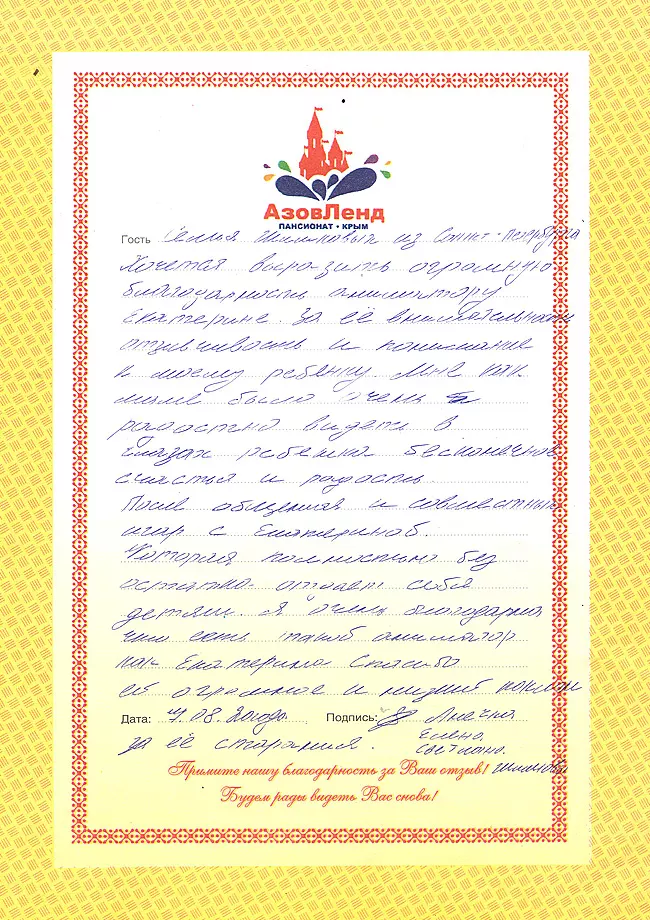 АзовЛенд
ПАНСИОНАТ • КРЫМ
Гость Семья из Санкт-Петербурга
Хочется выразить огромную
благодарность аниматору
Екатерине. За её внимательность
отзывчивость и понимание
к моему ребёнку. Мне как
маме было очень
радостно видеть в
глазах ребенка бесконечное
счастья и радость.
После общения и совместных
игр с Екатериной.
Которая полностью без
остатка отдаёт себя
детям. Я очень благодарна
что есть такой аниматор
как Екатерина Спасибо
ей огромное и низкий поклон
Дата: .08. Подпись:
Елена
Светлана
за её старания.
Примите нашу благодарность за Ваш отзыв!
Будем рады видеть Вас снова!